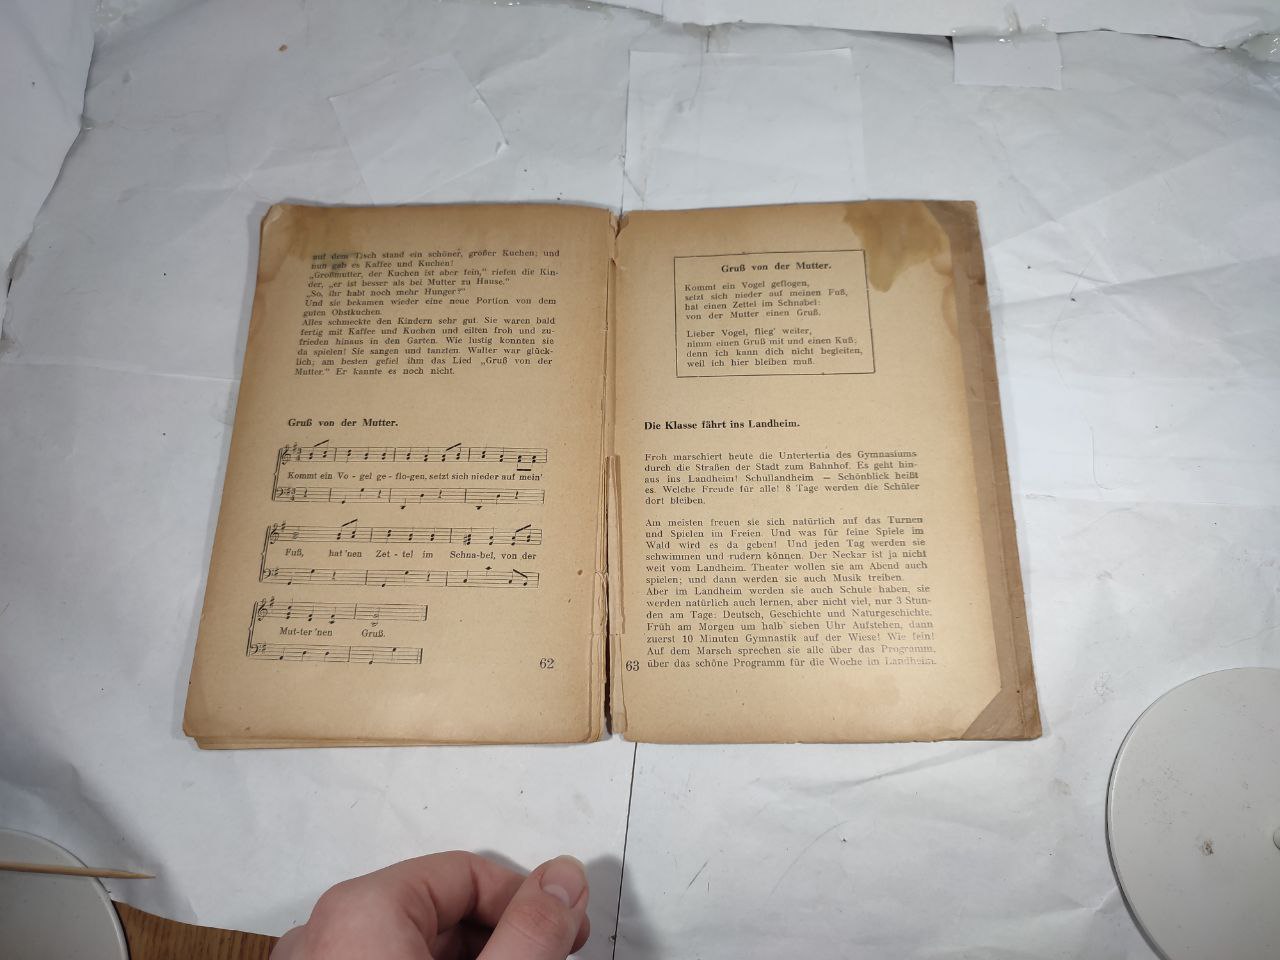 auf dem Tisch stand ein schöner, großer Kuchen; und
nun gab es Kaffee und Kuchen!
„Großmutter, der Kuchen ist aber fein,“ riefen die Kin-
der, „er ist besser als bei Mutter zu Hause.“
„So, ihr habt noch mehr Hunger?“
Und sie bekamen wieder eine neue Portion von dem
guten Obstkuchen.
Alles schmeckte den Kindern sehr gut. Sie waren bald
fertig mit Kaffee und Kuchen und eilten froh und zu-
frieden hinaus in den Garten. Wie lustig konnten sie
da spielen! Sie sangen und tanzten. Walter war glück-
lich; am besten gefiel ihm das Lied „Gruß von der
Mutter.“ Er kannte es noch nicht.
Gruß von der Mutter.
Kommt ein Vo - gel ge - flo-gen, setzt sich nieder auf mein'
Fuß, hat 'nen Zet - tel im Schna-bel, von der
Mut-ter 'nen Gruß.
62
Gruß von der Mutter.
Kommt ein Vogel geflogen,
setzt sich nieder auf meinen Fuß,
hat einen Zettel im Schnabel:
von der Mutter einen Gruß.
Lieber Vogel, flieg' weiter,
nimm einen Gruß mit und einen Kuß;
denn ich kann dich nicht begleiten,
weil ich hier bleiben muß.
Die Klasse fährt ins Landheim.
Froh marschiert heute die Untertertia des Gymnasiums
durch die Straßen der Stadt zum Bahnhof. Es geht hin-
aus ins Landheim! Schullandheim — Schönblick heißt
es. Welche Freude für alle! 8 Tage werden die Schüler
dort bleiben.
Am meisten freuen sie sich natürlich auf das Turnen
und Spielen im Freien. Und was für feine Spiele im
Wald wird es da geben! Und jeden Tag werden sie
schwimmen und rudern können. Der Neckar ist ja nicht
weit vom Landheim. Theater wollen sie am Abend auch
spielen; und dann werden sie auch Musik treiben.
Aber im Landheim werden sie auch Schule haben, sie
werden natürlich auch lernen, aber nicht viel, nur 3 Stun-
den am Tage: Deutsch, Geschichte und Naturgeschichte.
Früh am Morgen um halb sieben Uhr Aufstehen, dann
zuerst 10 Minuten Gymnastik auf der Wiese! Wie fein!
Auf dem Marsch sprechen sie alle über das Programm,
über das schöne Programm für die Woche im Landheim.
63